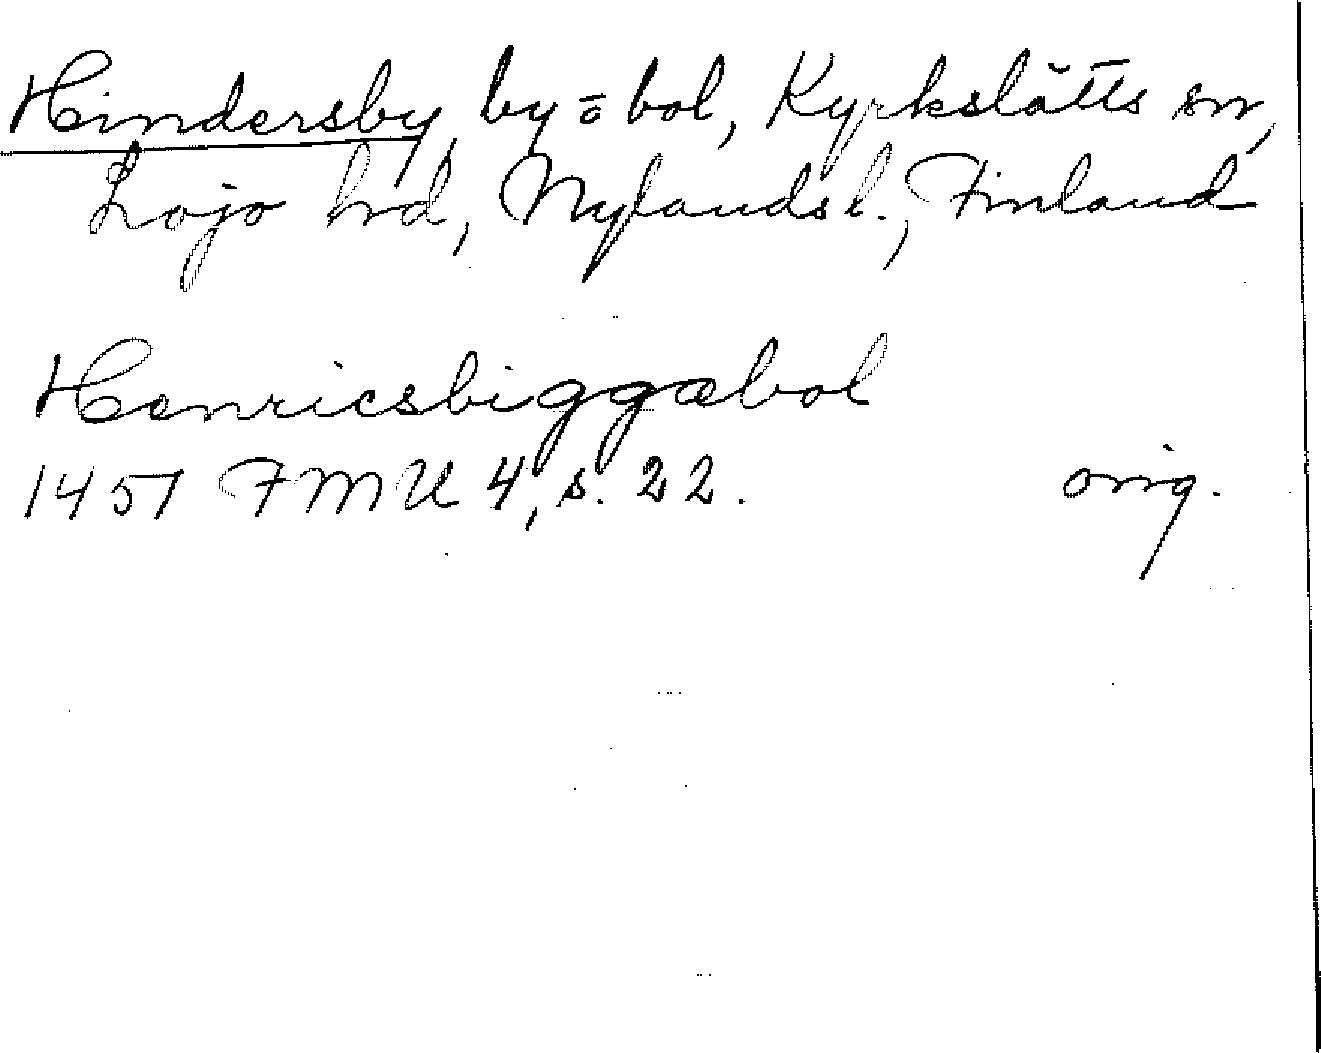 Hindersby, by o bol, Kyrkslätts sn,
Lojo hrd, Nylands l., Finland
Henricsbiggæbol
1451 FMU 4, s. 22. orig.